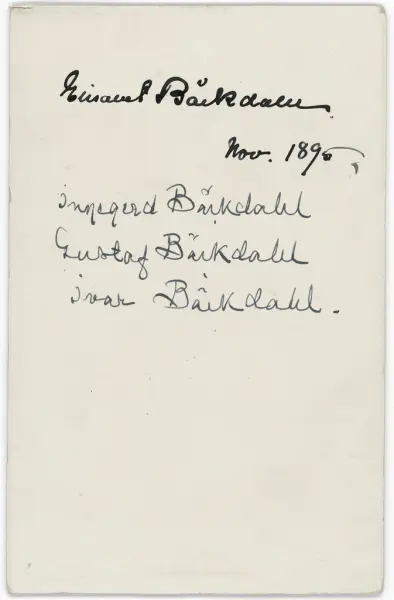 Elisabet Bäckdahl.
Nov. 1895
Inngerd Bäckdahl
Gustaf Bäckdahl
Ivar Bäckdahl.